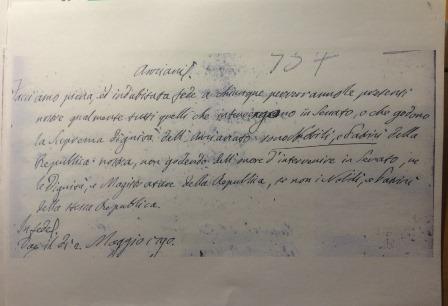 Anziani
737
Facciamo piena, et indubitata fede a chiunque perverranno le presenti
nostre qualmente tutti quelli che intervengono in Senato, o che godono
la Suprema dignità dell' Anzianato sono Nobili, e Patrizi della
Republica nostra, non godendo dell' onore d'intervenire in Senato, ne
le dignità, e Magistrature della Republica, se non i Nobili, e Patrizi
della stessa Republica.
In fede
Maggio 1790.